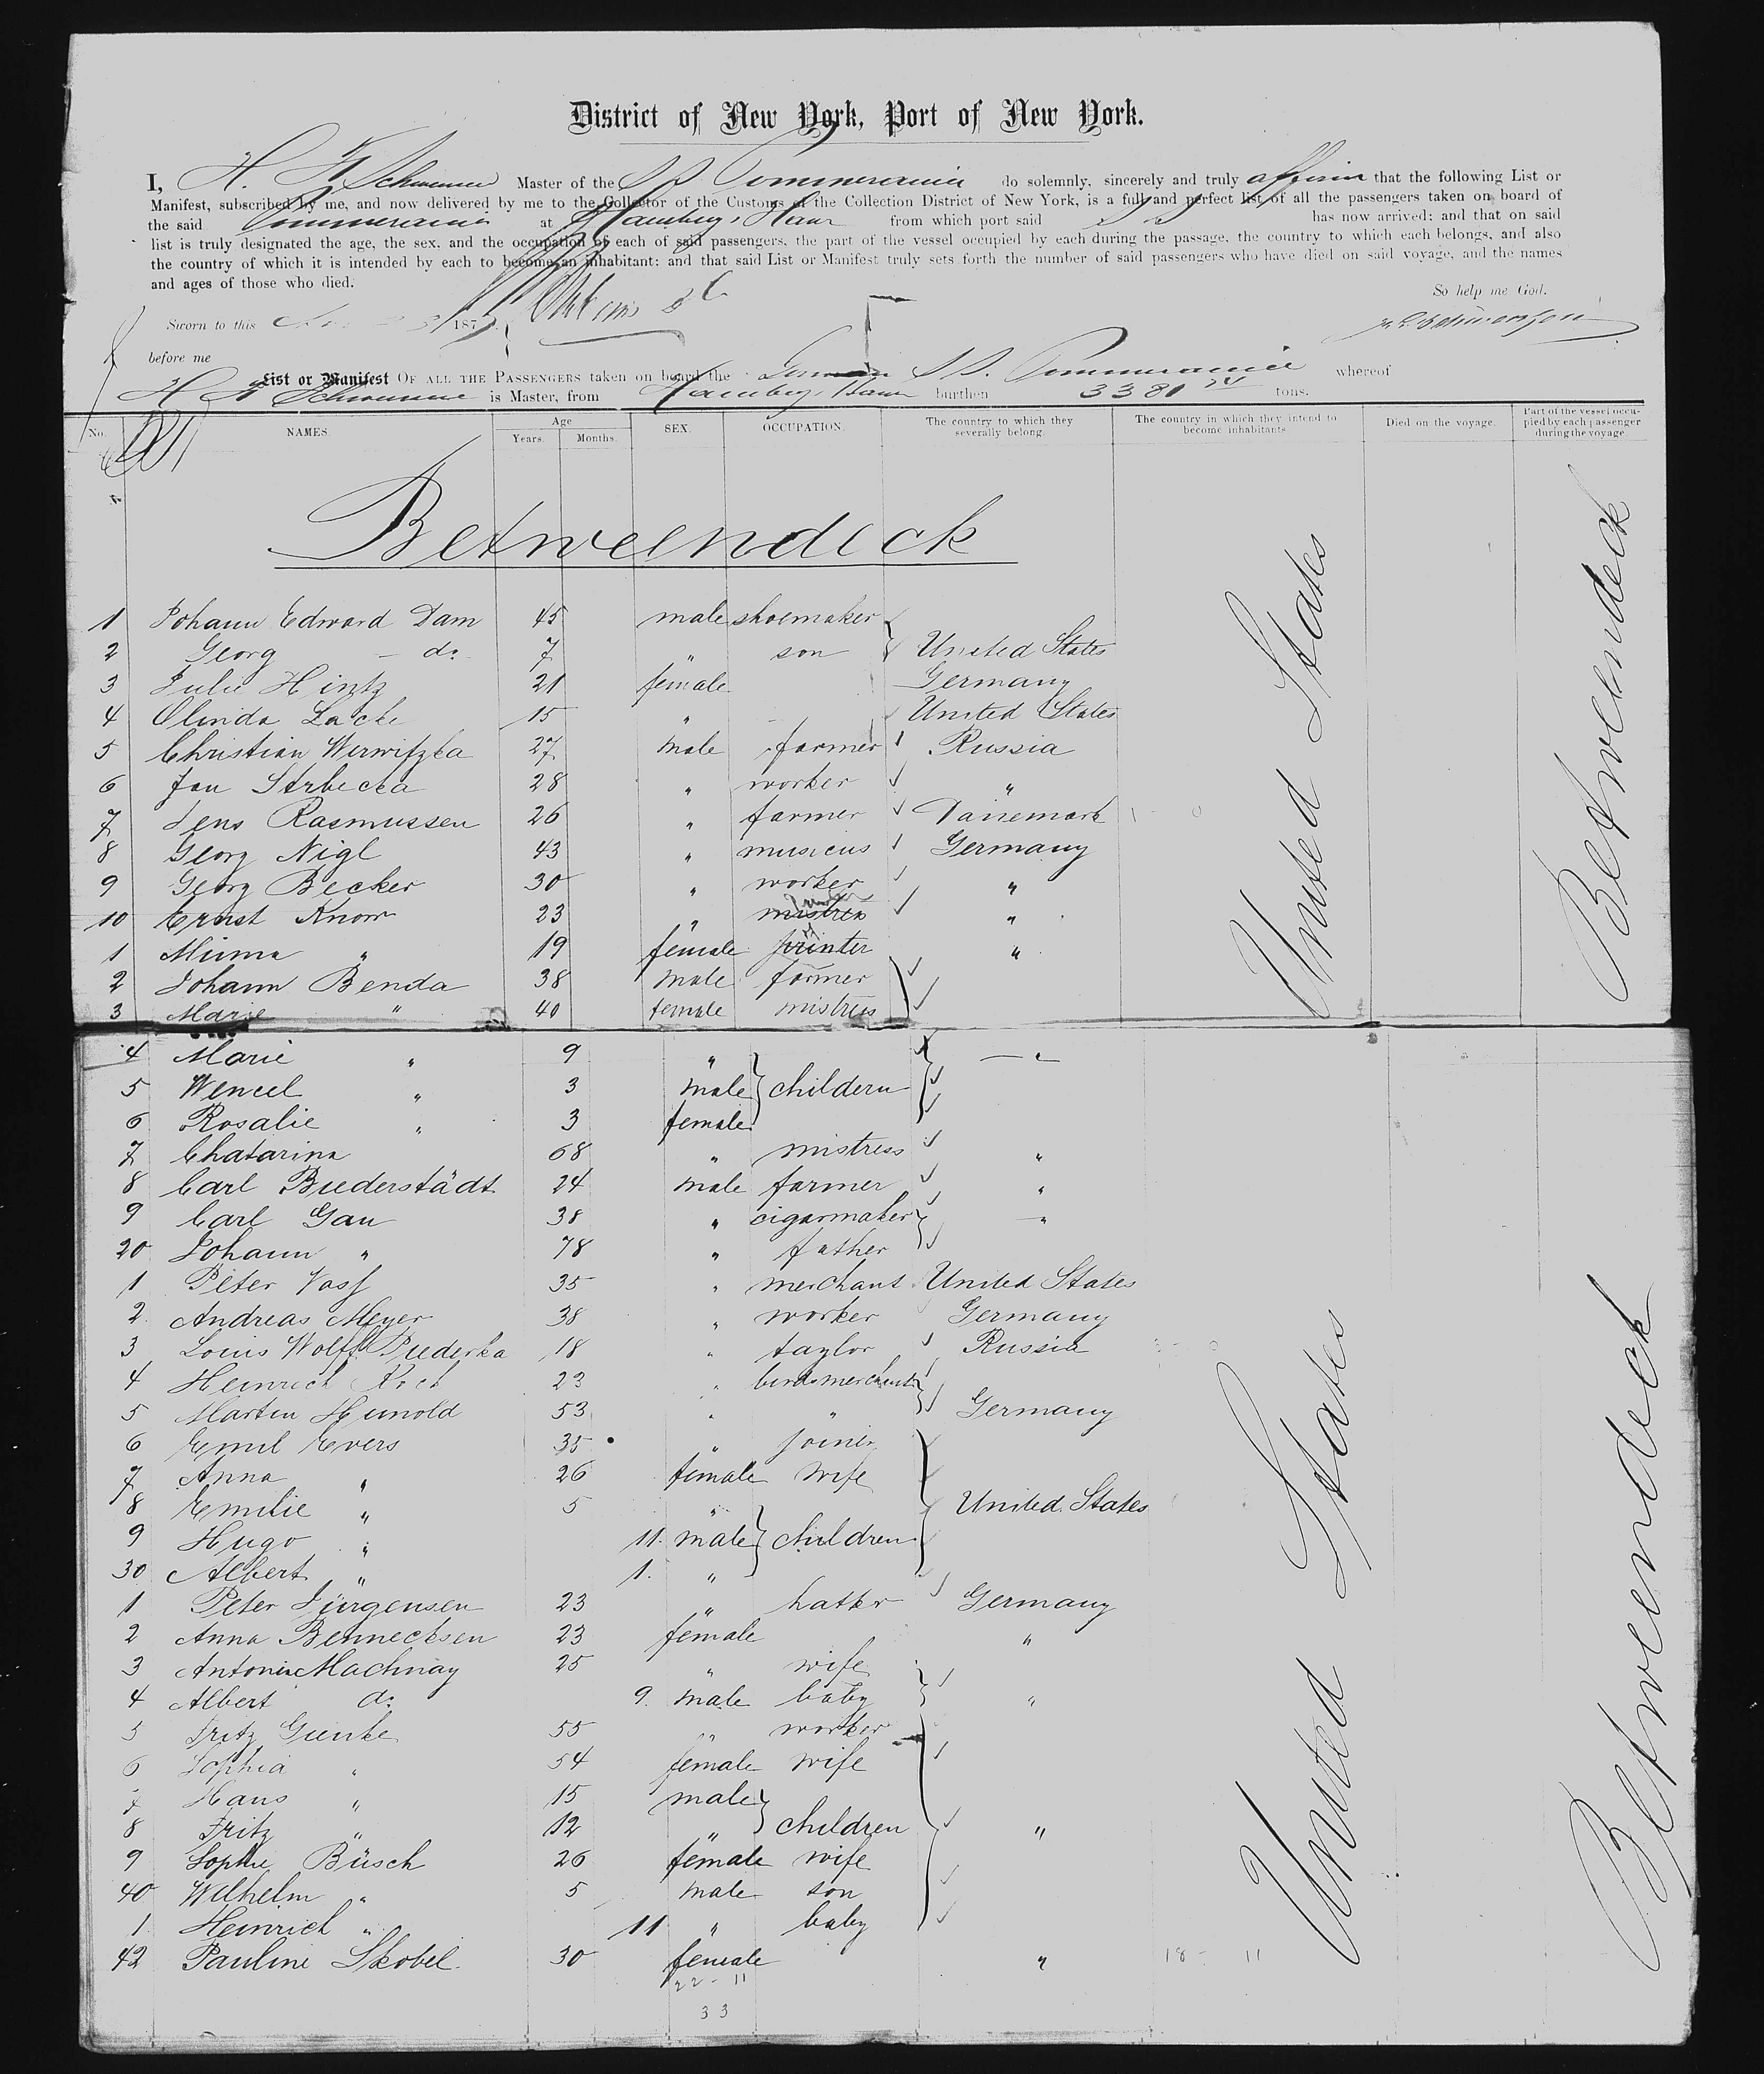 District of New York, Port of New York.
I, H. F. Schwensen Master of the S. S. Pommerania do solemnly, sincerely and truly affirm that the following List or
Manifest, subscribed by me, and now delivered by me to the Collector of the Customs of the Collection District of New York, is a full and perfect list of all the passengers taken on board of
the said Pommerania at Hamburg, Havre from which port said S S has now arrived; and that on said
list is truly designated the age, the sex, and the occupation of each of said passengers, the part of the vessel occupied by each during the passage, the country to which each belongs, and also
the country of which it is intended by each to become an inhabitant; and that said List or Manifest truly sets forth the number of said passengers who have died on said voyage, and the names
and ages of those who died.
So help me God.
Sworn to this 187
before me
List or Manifest OF ALL THE PASSENGERS taken on board the German S. S. Pommerania whereof
is Master, from Hamburg, Havre burthen 3380 tons.
No. NAMES. Age Years. Months. SEX. OCCUPATION. The country to which they severally belong. The country in which they intend to become inhabitants. Died on the voyage. Part of the vessel occupied by each passenger during the voyage.
Betweendeck
1 Johann Edward Dam 45 male shoemaker
2 Georg do. 7 " son United States
3 Julie Hintz 21 female Germany
4 Olinda Lacke 15 " United States
5 Christian Werwitzka 27 male farmer Russia
6 Jan Strbecka 28 " worker "
7 Jens Rasmussen 26 " farmer Dännemark
8 Georg Nigl 43 " musicus Germany
9 Georg Becker 30 " worker "
10 Ernst Knorr 23 " mistress "
1 Minna " 19 female printer "
2 Johann Benda 38 male farmer
3 Marie " 40 female mistress
4 Marie " 9 " — "
5 Wencel " 3 male childern
6 Rosalie " 3 female
7 Chatarina 68 " mistress "
8 Carl Biederstädt 24 male farmer "
9 Carl Gau 38 " cigarmaker "
20 Johann " 78 " father
1 Peter Voss 35 " merchant United States
2 Andreas Meyer 38 " worker Germany
3 Louis Wolff Piederka 18 " taylor Russia
4 Heinrich 23 " birdsmerchant
5 Martin Hunold 53 " " Germany
6 Emil Evers 35 " joiner
7 Anna " 26 female wife
8 Emilie " 5 " United States
9 Hugo " 11. male children
30 Albert " 1. "
1 Peter Jürgensen 23 " hatter Germany
2 Anna Bennecksen 23 female "
3 Antonie Machnay 25 " wife
4 Albert do. 9. male baby "
5 Fritz Gienke 55 " worker
6 Sophia " 54 female wife
7 Hans " 15 male
8 Fritz " 12 " children "
9 Sophie Büsch 26 female wife
40 Wilhelm " 5 male son
1 Heinrich " 11 " baby
42 Pauline Skobel 30 female " 18 - 11
22 - 11
33
United States
Betweendeck
United States
United States
Betweendeck